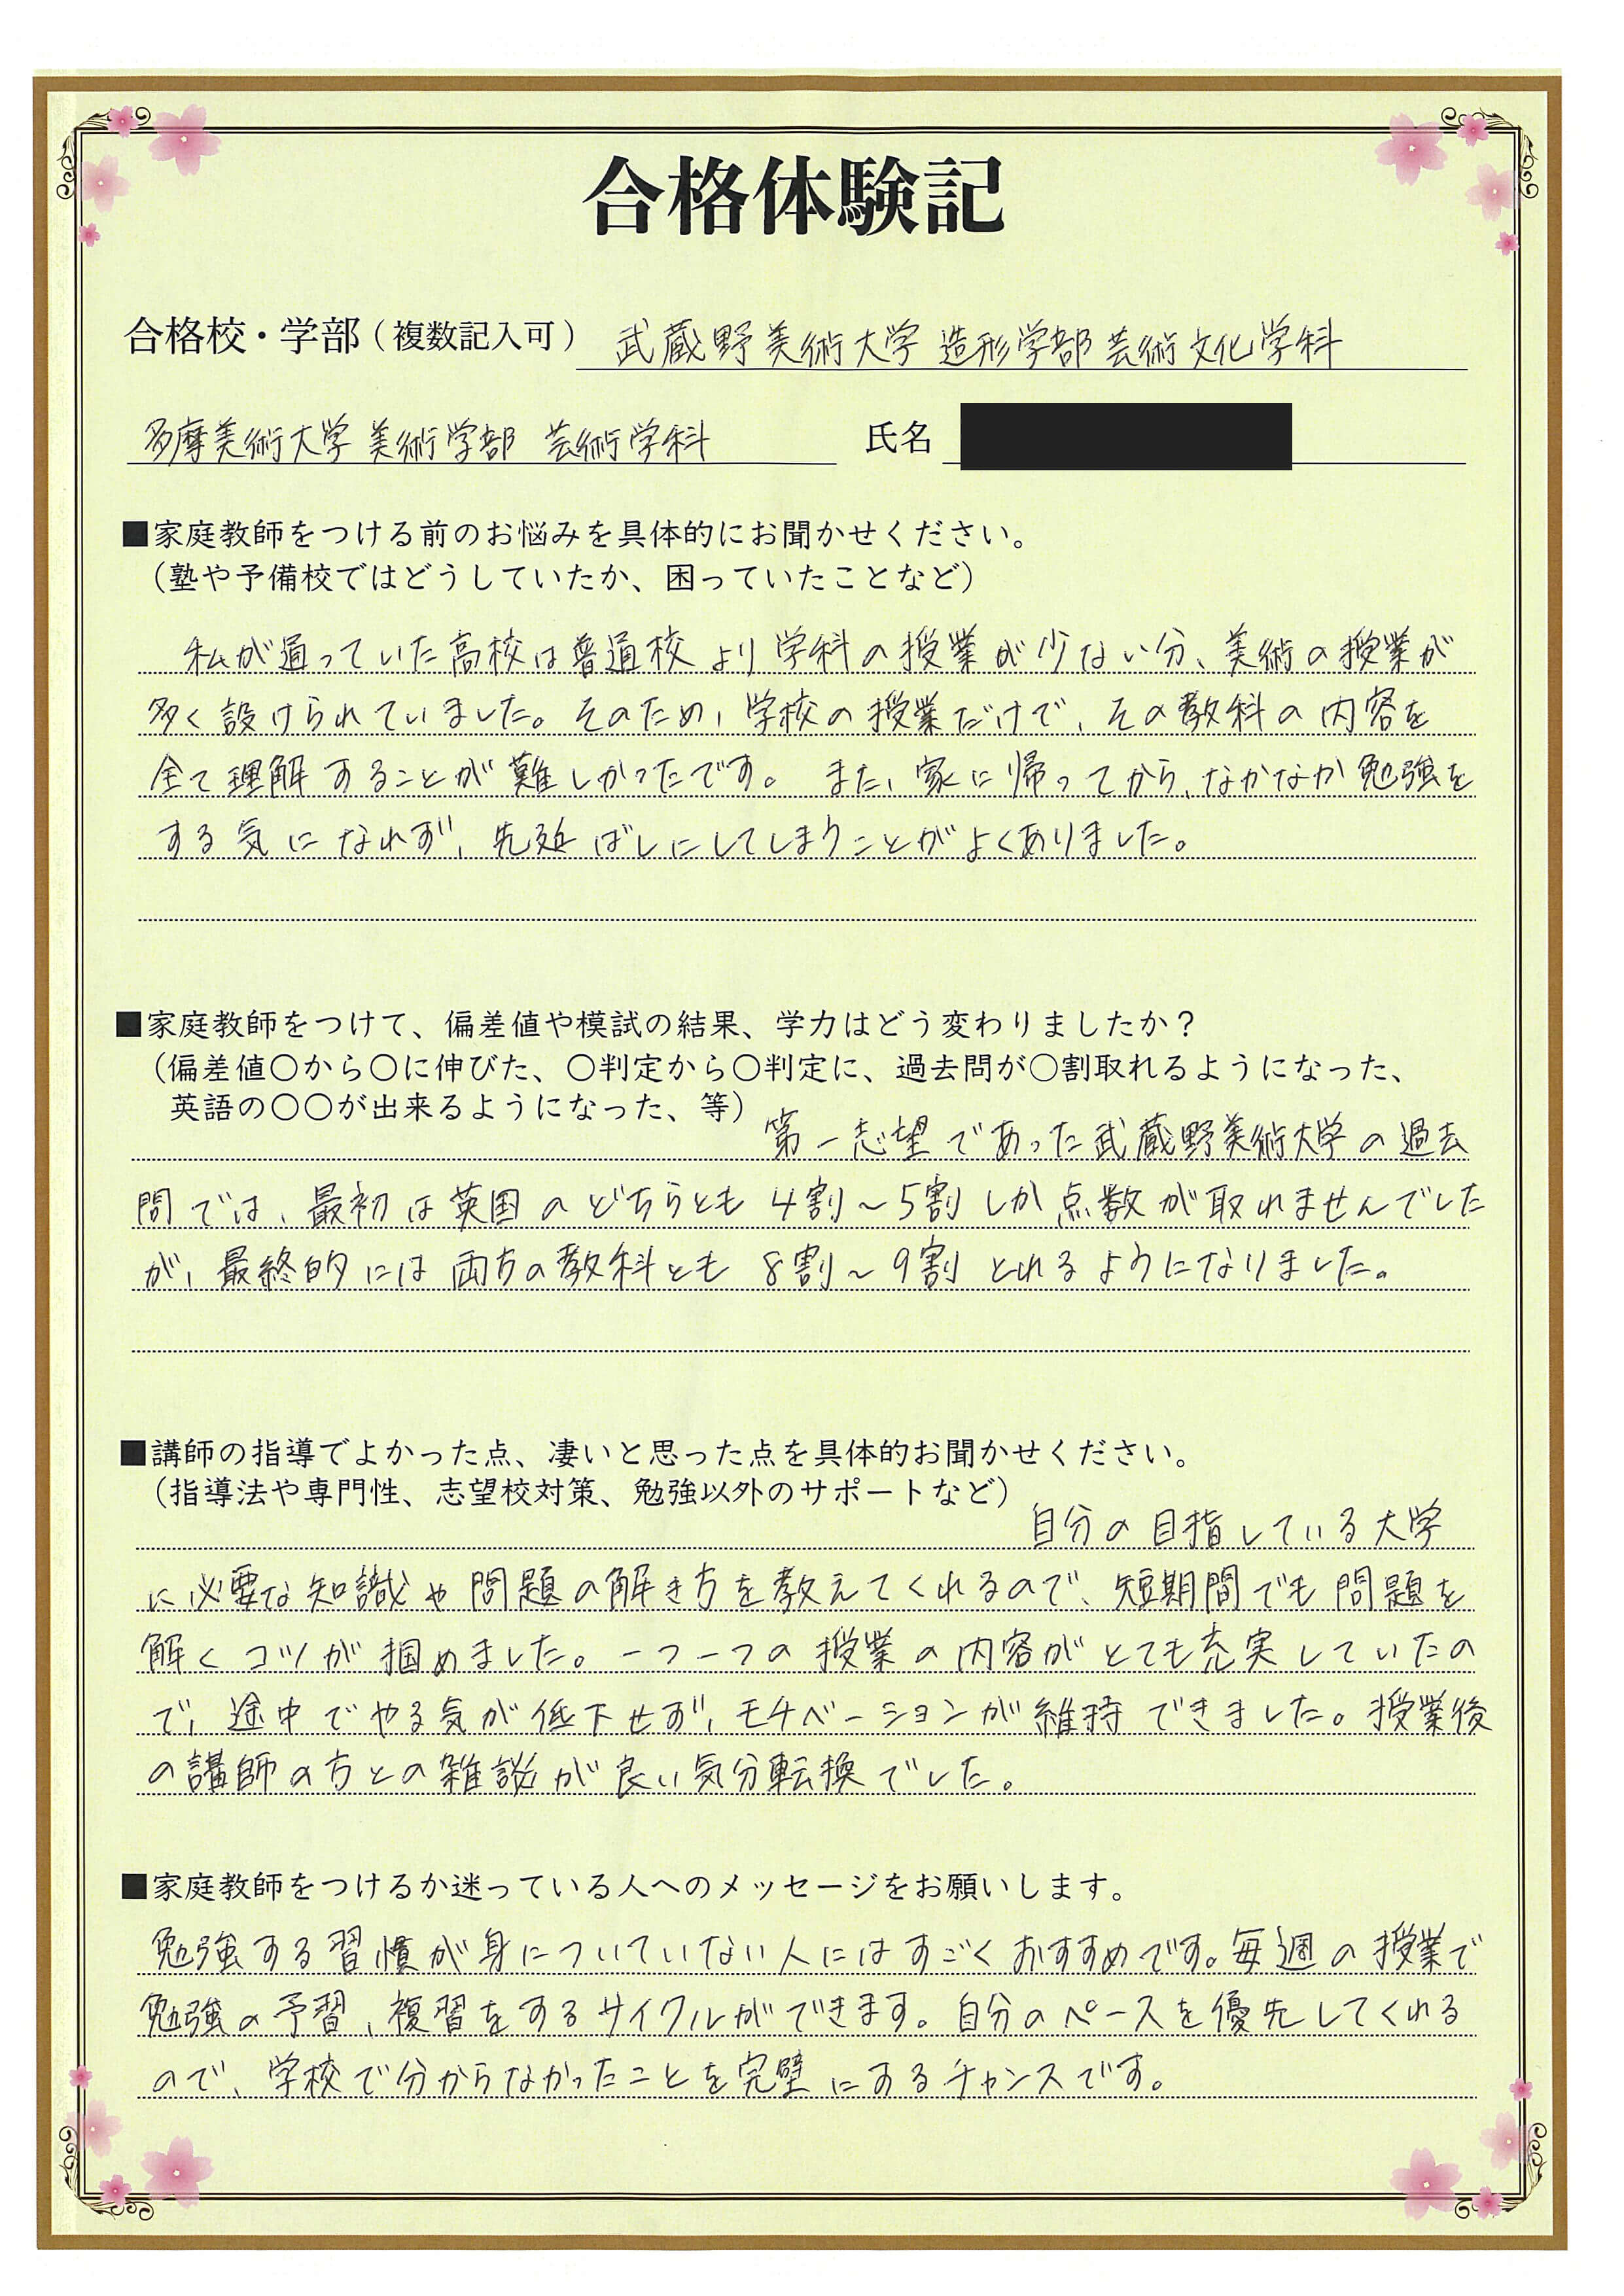 合格体験記
合格校・学部（複数記入可） 武蔵野美術大学 造形学部 芸術文化学科
多摩美術大学 美術学部 芸術学科 氏名
■家庭教師をつける前のお悩みを具体的にお聞かせください。
（塾や予備校ではどうしていたか、困っていたことなど）
私が通っていた高校は普通校より学科の授業が少ない分、美術の授業が
多く設けられていました。そのため、学校の授業だけで、その教科の内容を
全て理解することが難しかったです。また、家に帰ってから、なかなか勉強を
する気になれず、先延ばしにしてしまうことがよくありました。
■家庭教師をつけて、偏差値や模試の結果、学力はどう変わりましたか？
（偏差値〇から〇に伸びた、〇判定から〇判定に、過去問が〇割取れるようになった、
英語の〇〇が出来るようになった、等）
第一志望であった武蔵野美術大学の過去
問では、最初は英国のどちらとも4割～5割しか点数が取れませんでした
が、最終的には両方の教科とも8割～9割とれるようになりました。
■講師の指導でよかった点、凄いと思った点を具体的お聞かせください。
（指導法や専門性、志望校対策、勉強以外のサポートなど）
自分の目指している大学
に必要な知識や問題の解き方を教えてくれるので、短期間でも問題を
解くコツが掴めました。一つ一つの授業の内容がとても充実していたの
で、途中でやる気が低下せず、モチベーションが維持できました。授業後
の講師の方との雑談が良い気分転換でした。
■家庭教師をつけるか迷っている人へのメッセージをお願いします。
勉強する習慣が身についていない人にはすごくおすすめです。毎週の授業で
勉強の予習、複習をするサイクルができます。自分のペースを優先してくれる
ので、学校で分からなかったことを完璧にするチャンスです。